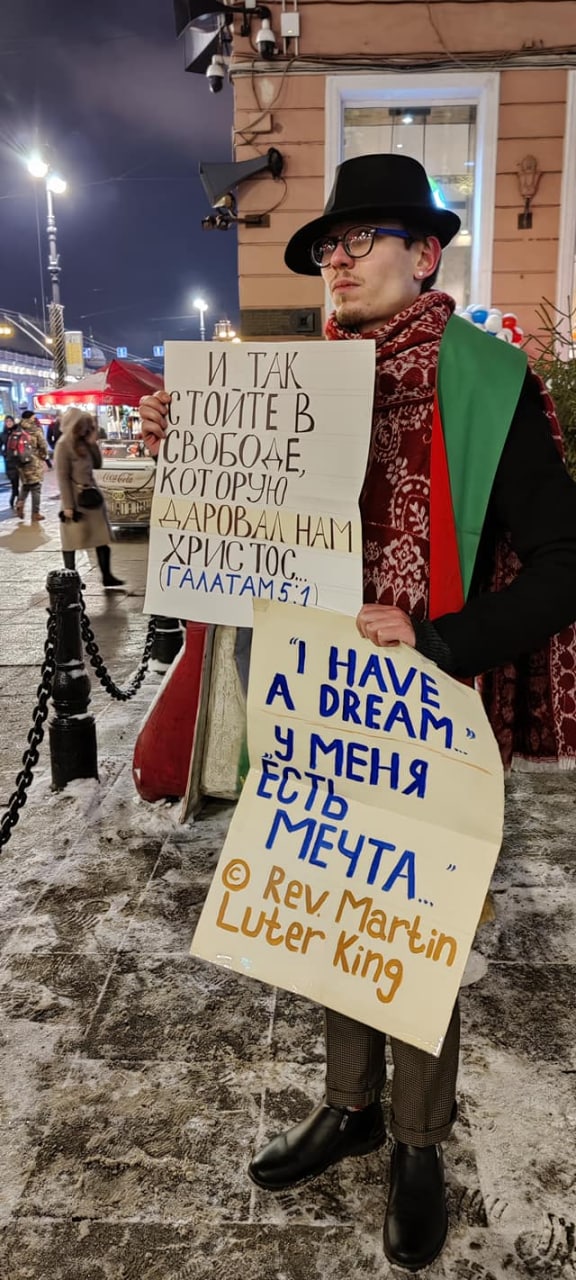 И ТАК
СТОЙТЕ В
СВОБОДЕ,
КОТОРУЮ
ДАРОВАЛ НАМ
ХРИСТОС...
(ГАЛАТАМ 5:1)
"I HAVE
A DREAM..."
"У МЕНЯ
ЕСТЬ
МЕЧТА..."
© Rev. Martin
Luter King
Coca-Cola